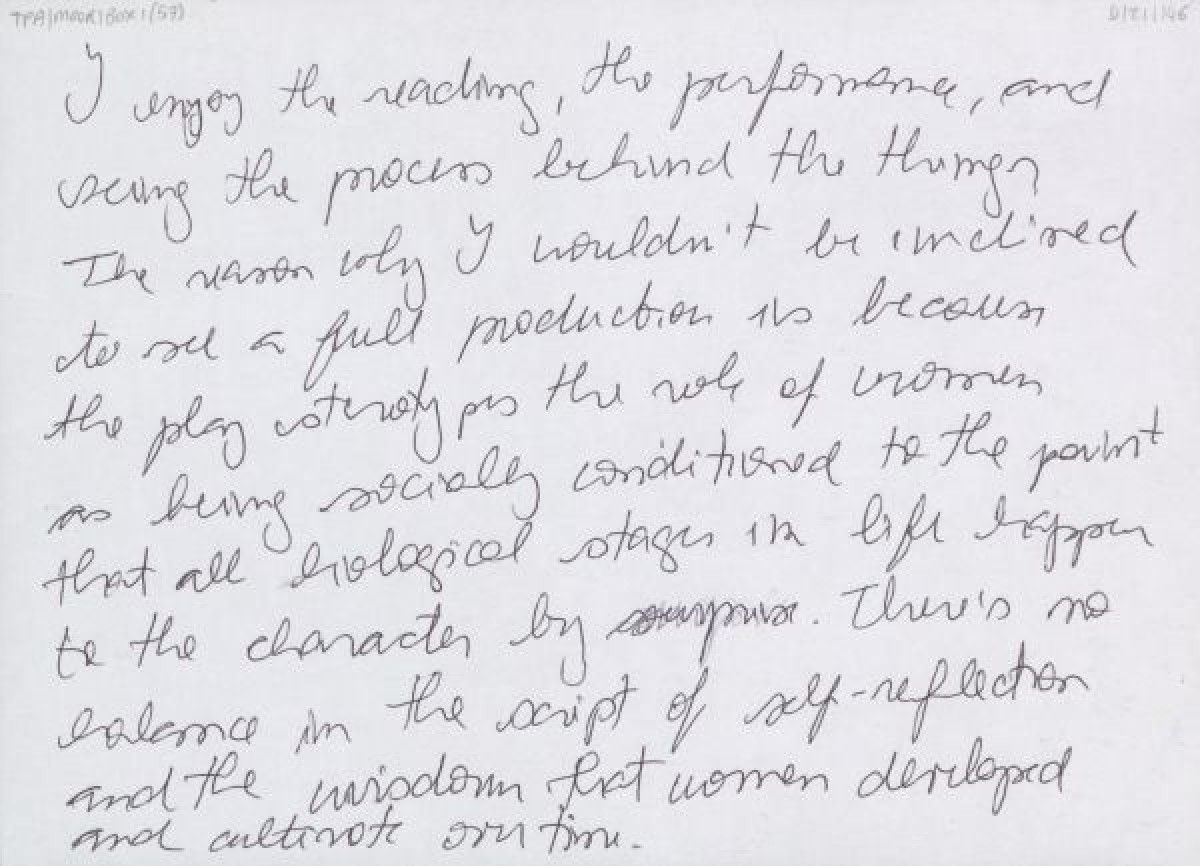 TPA/MOOR/BOX 1/(57)
D/21/146
I enjoy the reading, the performance, and
seeing the process behind the things
The reason why I wouldn't be inclined
to see a full production is because
the play stereotypes the role of women
as being socially conditioned to the point
that all biological stages in life happen
to the character by surprise. There's no
balance in the script of self-reflection
and the wisdom that women developed
and cultivate over time.